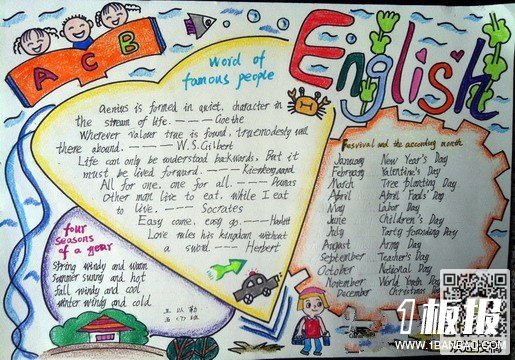 A C B
Word of
famous people
English
Genius is formed in quiet, character in
the stream of life. ———— Goethe
Wherever valour true is found, true modesty will
there abound. ———— W.S.Gilbert
Life can only be understood backwards, but it
must be lived forward.
All for one, one for all. ———— Dumas
Other man live to eat, while I eat
to live. ———— Socrates
Easy come, easy go. ————
Love rules his kingdom without
a sword. ———— Herbert
four
seasons
of a year
Spring windy and warm
Summer sunny and hot
fall windy and cool
winter windy and cold
Festival and the according month
January New Year's Day
February Valentine's Day
March Tree planting Day
April April Fools' Day
May Labor Day
June Children's Day
July Party founding Day
August Army Day
September Teacher's Day
October National Day
November World Youth Day
December Christmas
1板报
WWW.1BANBAO.COM